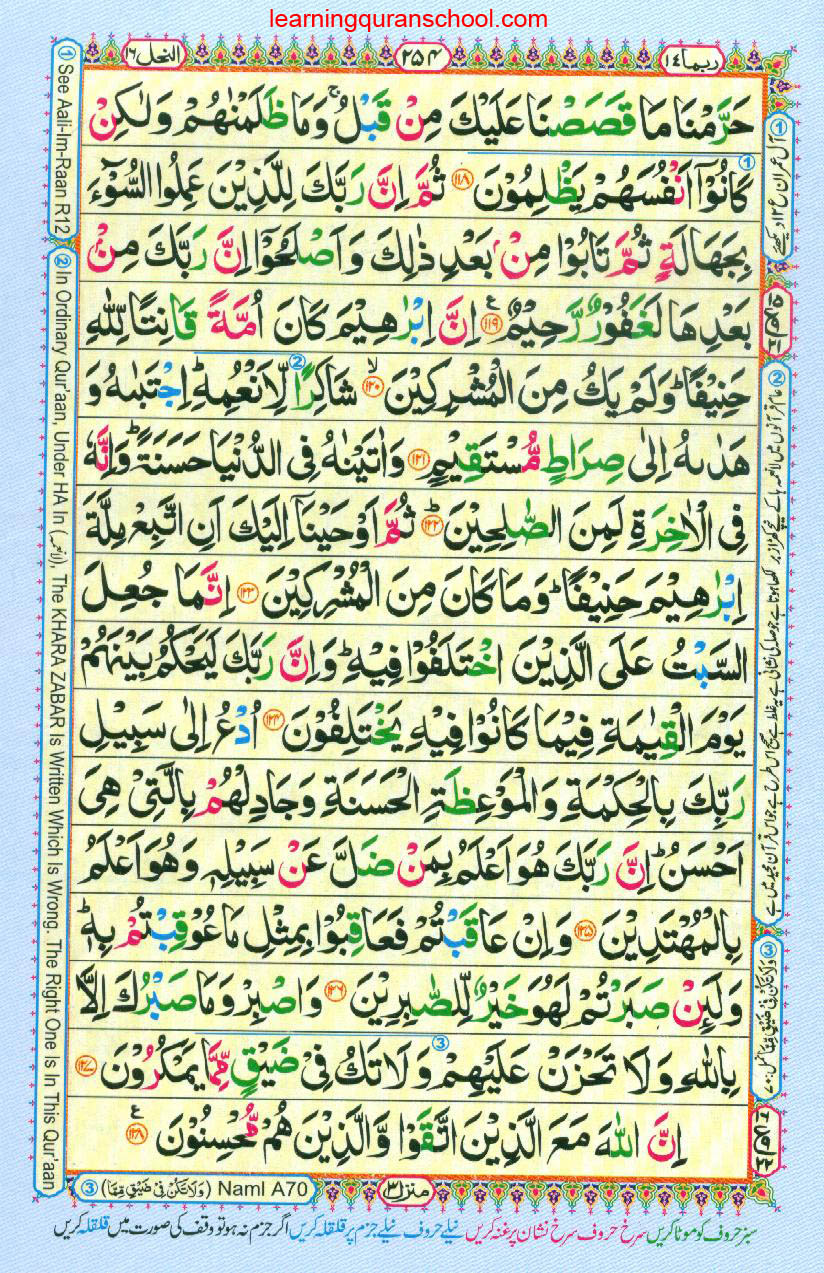 learningquranschool.com
ربما ١٤
٢٥٤
النحل ١٦
حَرَّمْنَا مَا قَصَصْنَا عَلَيْكَ مِنْ قَبْلُ ۚ وَمَا ظَلَمْنٰهُمْ وَلٰكِنْ
كَانُوْۤا اَنْفُسَهُمْ يَظْلِمُوْنَ ﴿۱۱۸﴾ ثُمَّ اِنَّ رَبَّكَ لِلَّذِيْنَ عَمِلُوا السُّوْٓءَ
بِجَهَالَةٍ ثُمَّ تَابُوْا مِنْۢ بَعْدِ ذٰلِكَ وَاَصْلَحُوْۤا اِنَّ رَبَّكَ مِنْۢ
بَعْدِهَا لَغَفُوْرٌ رَّحِيْمٌ ﴿۱۱۹﴾ اِنَّ اِبْرٰهِيْمَ كَانَ اُمَّةً قَانِتًا لِّلّٰهِ
حَنِيْفًا ؕ وَلَمْ يَكُ مِنَ الْمُشْرِكِيْنَ ﴿۱۲۰﴾ شَاكِرًا لِّاَنْعُمِهٖ ؕ اِجْتَبٰىهُ وَ
هَدٰىهُ اِلٰى صِرَاطٍ مُّسْتَقِيْمٍ ﴿۱۲۱﴾ وَاٰتَيْنٰهُ فِى الدُّنْيَا حَسَنَةً ؕ وَاِنَّهٗ
فِى الْاٰخِرَةِ لَمِنَ الصّٰلِحِيْنَ ﴿۱۲۲﴾ ثُمَّ اَوْحَيْنَاۤ اِلَيْكَ اَنِ اتَّبِعْ مِلَّةَ
اِبْرٰهِيْمَ حَنِيْفًا ؕ وَمَا كَانَ مِنَ الْمُشْرِكِيْنَ ﴿۱۲۳﴾ اِنَّمَا جُعِلَ
السَّبْتُ عَلَى الَّذِيْنَ اخْتَلَفُوْا فِيْهِ ؕ وَاِنَّ رَبَّكَ لَيَحْكُمُ بَيْنَهُمْ
يَوْمَ الْقِيٰمَةِ فِيْمَا كَانُوْا فِيْهِ يَخْتَلِفُوْنَ ﴿۱۲۴﴾ اُدْعُ اِلٰى سَبِيْلِ
رَبِّكَ بِالْحِكْمَةِ وَالْمَوْعِظَةِ الْحَسَنَةِ وَجَادِلْهُمْ بِالَّتِىْ هِىَ
اَحْسَنُ ؕ اِنَّ رَبَّكَ هُوَ اَعْلَمُ بِمَنْ ضَلَّ عَنْ سَبِيْلِهٖ وَهُوَ اَعْلَمُ
بِالْمُهْتَدِيْنَ ﴿۱۲۵﴾ وَاِنْ عَاقَبْتُمْ فَعَاقِبُوْا بِمِثْلِ مَا عُوْقِبْتُمْ بِهٖ ؕ
وَلَئِنْ صَبَرْتُمْ لَهُوَ خَيْرٌ لِّلصّٰبِرِيْنَ ﴿۱۲۶﴾ وَاصْبِرْ وَمَا صَبْرُكَ اِلَّا
بِاللّٰهِ وَلَا تَحْزَنْ عَلَيْهِمْ وَلَا تَكُ فِىْ ضَيْقٍ مِّمَّا يَمْكُرُوْنَ ﴿۱۲۷﴾
اِنَّ اللّٰهَ مَعَ الَّذِيْنَ اتَّقَوْا وَّالَّذِيْنَ هُمْ مُّحْسِنُوْنَ ﴿۱۲۸﴾
① See Aali-Im-Raan R12
② In Ordinary Qur'aan, Under HA In (لِاَنْعُمِهٖ), The KHARA ZABAR Is Written Which Is Wrong. The Right One Is In This Qur'aan
منزل ٣
③ (وَلَا تَكُنْ فِىْ ضَيْقٍ مِّمَّا) Naml A70
سبز حروف کو موٹا کریں سرخ حروف سرخ نشان پر غنہ کریں نیلے حروف نیلے جزم پر قلقلہ کریں اگر جزم نہ ہو تو وقف کی صورت میں قلقلہ کریں